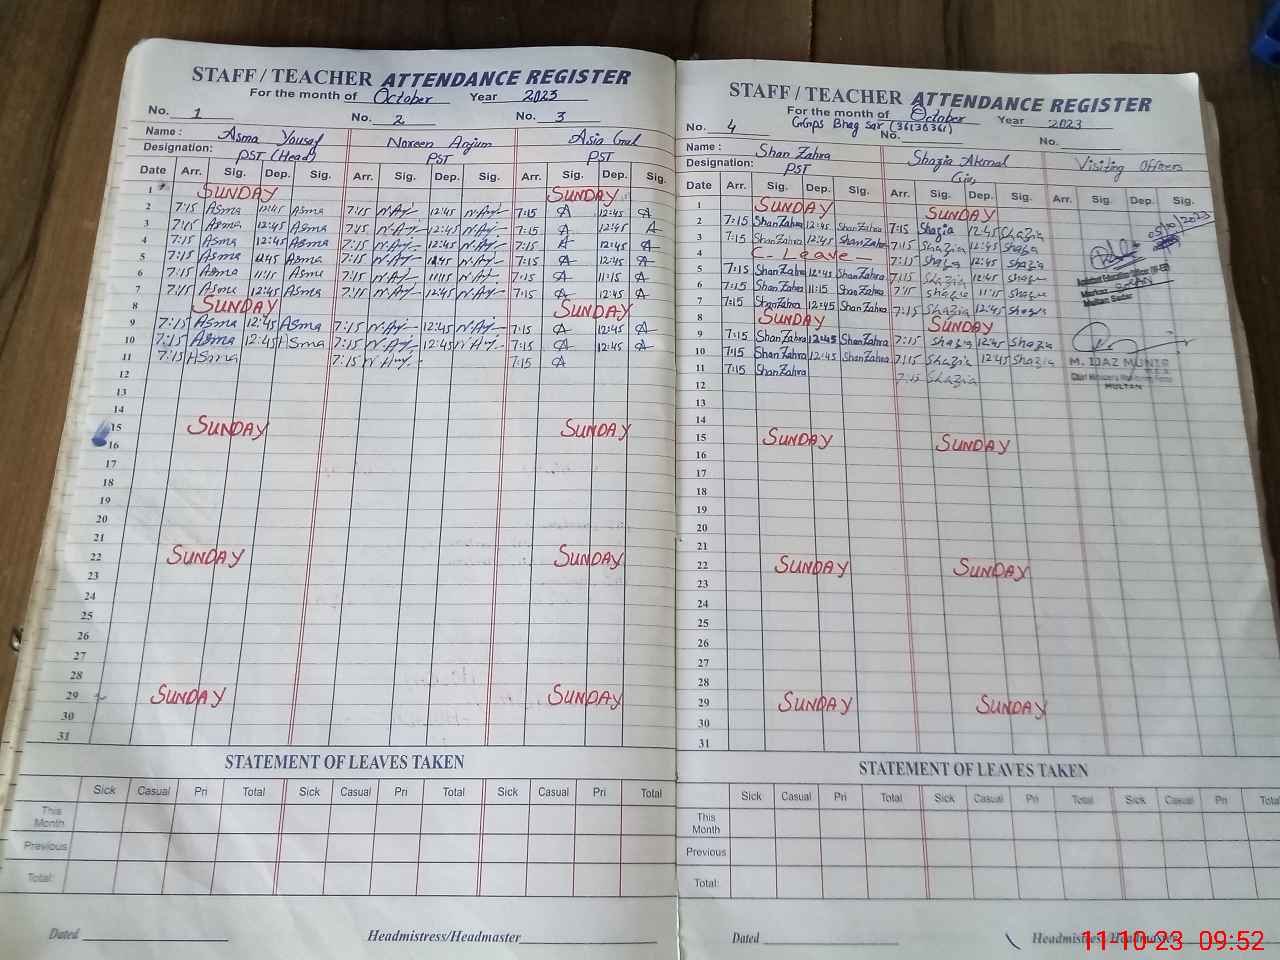 STAFF / TEACHER ATTENDANCE REGISTER
For the month of October Year 2023
No. 1 No. 2 No. 3
Name : Asma Yousaf Noreen Anjum Asia Gul
Designation: PST (Head) PST PST
Date Arr. Sig. Dep. Sig. Arr. Sig. Dep. Sig. Arr. Sig. Dep. Sig.
1 SUNDAY SUNDAY
2 7:15 Asma 12:45 Asma 7:15 N.Anj 12:45 N.Anj 7:15 A 12:45 A
3 7:15 Asma 12:45 Asma 7:15 N.Anj 12:45 N.Anj 7:15 A 12:45 A
4 7:15 Asma 12:45 Asma 7:15 N.Anj 12:45 N.Anj 7:15 A 12:45 A
5 7:15 Asma 12:45 Asma 7:15 N.Anj 12:45 N.Anj 7:15 A 12:45 A
6 7:15 Asma 11:15 Asma 7:15 N.Anj 11:15 N.Anj 7:15 A 11:15 A
7 7:15 Asma 12:45 Asma 7:15 N.Anj 12:45 N.Anj 7:15 A 12:45 A
8 SUNDAY SUNDAY
9 7:15 Asma 12:45 Asma 7:15 N.Anj 12:45 N.Anj 7:15 A 12:45 A
10 7:15 Asma 12:45 Asma 7:15 N.Anj 12:45 N.Anj 7:15 A 12:45 A
11 7:15 Asma 7:15 N.Anj 7:15 A
12
13
14
15 SUNDAY SUNDAY
16
17
18
19
20
21
22 SUNDAY SUNDAY
23
24
25
26
27
28
29 SUNDAY SUNDAY
30
31
STATEMENT OF LEAVES TAKEN
Sick Casual Pri Total Sick Casual Pri Total Sick Casual Pri Total
This Month
Previous
Total:
Dated Headmistress/Headmaster
STAFF / TEACHER ATTENDANCE REGISTER
For the month of October Year 2023
GGPS Bhag Sar (36130361)
No. 4 No. No.
Name : Shan Zahra Shazia Akmal Visiting Officers
Designation: PST
Date Arr. Sig. Dep. Sig. Arr. Sig. Dep. Sig. Arr. Sig. Dep. Sig.
1 SUNDAY SUNDAY
2 7:15 ShanZahra 12:45 ShanZahra 7:15 Shazia 12:45 Shazia 05/10/2023
3 7:15 ShanZahra 12:45 ShanZahra 7:15 Shazia 12:45 Shazia
4 C- Leave - 7:15 Shazia 12:45 Shazia
5 7:15 ShanZahra 12:45 ShanZahra 7:15 Shazia 12:45 Shazia
6 7:15 ShanZahra 11:15 ShanZahra 7:15 Shazia 11:15 Shazia
7 7:15 ShanZahra 12:45 ShanZahra 7:15 Shazia 12:45 Shazia
8 SUNDAY SUNDAY
9 7:15 ShanZahra 12:45 ShanZahra 7:15 Shazia 12:45 Shazia
10 7:15 ShanZahra 12:45 ShanZahra 7:15 Shazia 12:45 Shazia
11 7:15 ShanZahra 7:15 Shazia
Assistant Education Officer
Multan Sadar
M. IJAZ MUNIR
MULTAN
12
13
14
15 SUNDAY SUNDAY
16
17
18
19
20
21
22 SUNDAY SUNDAY
23
24
25
26
27
28
29 SUNDAY SUNDAY
30
31
STATEMENT OF LEAVES TAKEN
Sick Casual Pri Total Sick Casual Pri Total Sick Casual Pri Total
This Month
Previous
Total:
Dated Headmistress/Headmaster
11-10-23 09:52